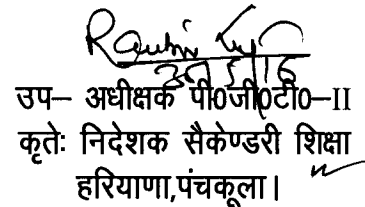 उप– अधीक्षक पी0जी0टी0–II
कृतेः निदेशक सैकेण्डरी शिक्षा
हरियाणा,पंचकूला।